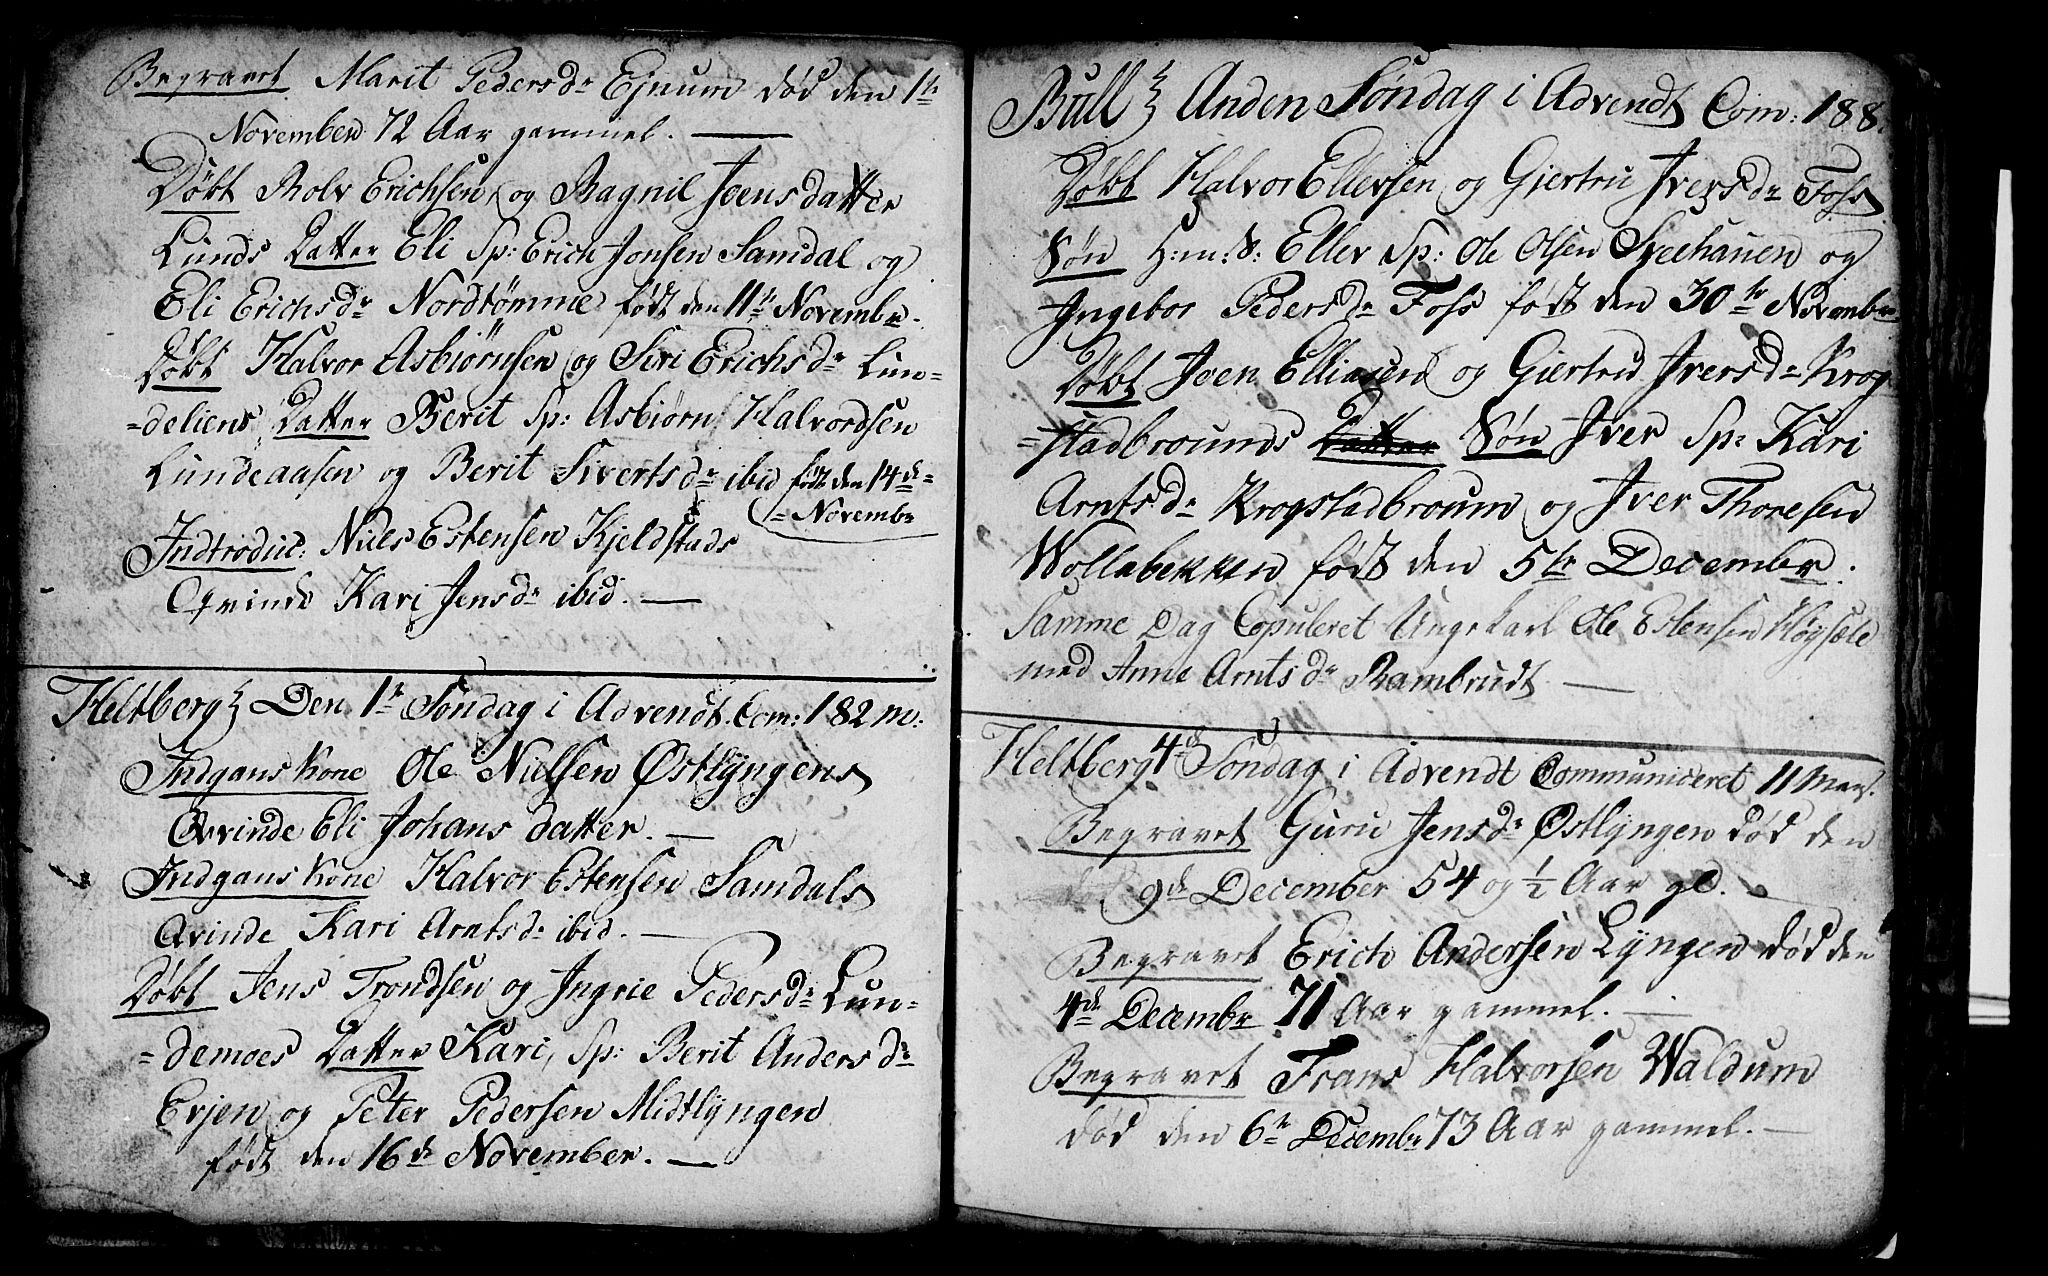 Begravet Marit Pedersdr Ejnum død den 1te
November 72 Aar gammel. —
Døbt Rolv Erichsen og Ragnil Joensdatter
Lunds Datter Eli Sp: Erich Jonsen Samdal og
Eli Erichsdr Nordtømme født den 11te Novembr.
Døbt Halvor Asbiørnsen og Siri Erichsdr Lun-
-deliens Datter Berit Sp: Asbiørn Halvordsen
Lundeaasen og Berit Sivertsdr ibid født den 14de
- Novembr
Indtroduc: Niels Estensen Kjeldstads
Qvinde Kari Jensdr ibid. —
Heltberg Den 1te Søndag i Advendt. Com: 182 m:
Indgans Kone Ole Nielsen Østlyngens
Qvinde Eli Johansdatter. —
Indgans Kone Halvor Estensen Samdals
Qvinde Kari Arntsdr ibid. —
Døbt Jens Trondsen og Ingrie Pedersdr Lun-
-demoes Datter Kari, Sp: Berit Andersdr
Evjen og Peter Pedersen Midtlyngen
født den 16de November. —
Bull Anden Søndag i Advendt Com: 188.
Døbt Halvor Ellevsen og Gjertru Iversdr Foss
Søn H:m:S: Ellev Sp: Ole Olsen Sveehauen og
Ingebor Pedersdr Foss født den 30te Novembr
Døbt Joen Elliasen og Giertru Iversdr Krog
-stadbrounds Datter Søn Iver Sp: Kari
Arntsdr Krogstadbroum og Iver Thoresen
Wollabekken født den 5te Decembr.
Samme Dag Copuleret Ungekarl Ole Estensen Høysæle
med Anne Arntsdr Rambrudt —
Heltberg 4de Søndag i Advendt Communiceret 11 Mens.
Begravet Guru Jensdr Østlyngen død den
9de December 54 og 1/2 Aar gl. —
Begravet Erich Andersen Lyngen død den
4de Decembr 71 Aar gammel. —
Begravet Frans Halvorsen Waldum
død den 6te Decembr 73 Aar gammel. —